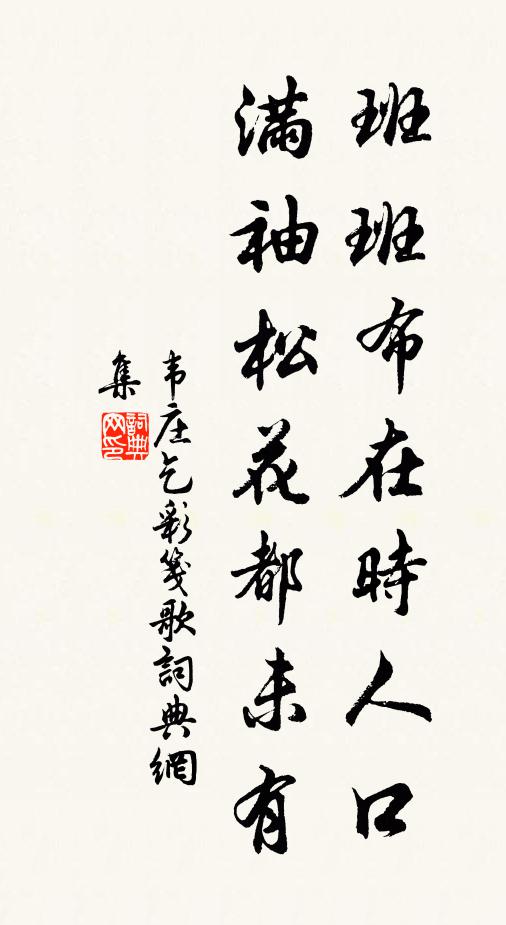 班班布在時人口
滿袖松花都未有
韦庄乞彩箋歌詞典網
集
詞典
网印